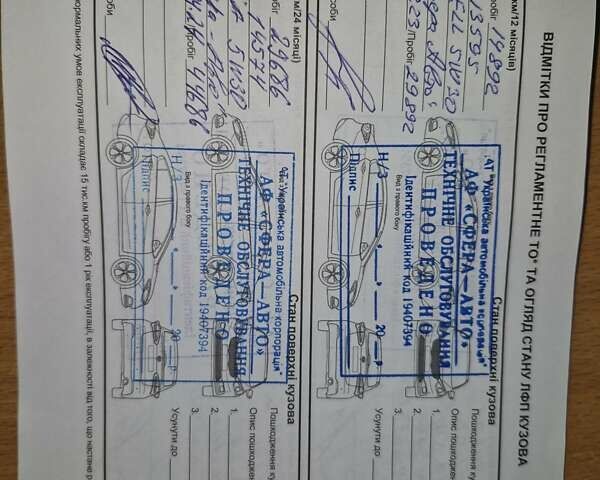 ВІДМІТКИ ПРО РЕГЛАМЕНТНЕ ТО* ТА ОГЛЯД СТАНУ ЛФП КУЗОВА
км/12 місяців)
Пробіг 14892
13595
5W30
23/Пробіг 29892
Стан поверхні кузова
Пошкодження ку
Опис пошкоджен
1.
2.
3.
Усунути до
Вид з правого боку
АТ "Українська автомобільна корпорація"
АФ «СФЕРА–АВТО»
ТЕХНІЧНЕ ОБСЛУГОВУВАННЯ
ПРОВЕДЕНО
Ідентифікаційний код 19407394
Н/З
20
Підпис
м/24 місяці)
біг 29686
14574
5W30
44686
роби
Стан поверхні кузова
Пошкодження ку
Опис пошкоджен
1.
2.
3.
Усунути до
Вид з правого боку
АТ "Українська автомобільна корпорація"
АФ «СФЕРА–АВТО»
ТЕХНІЧНЕ ОБСЛУГОВУВАННЯ
ПРОВЕДЕНО
Ідентифікаційний код 19407394
Н/З
20
Підпис
нормальних умов експлуатації складає 15 тис.км пробігу або 1 рік експлуатації, в залежності від того, що настане р